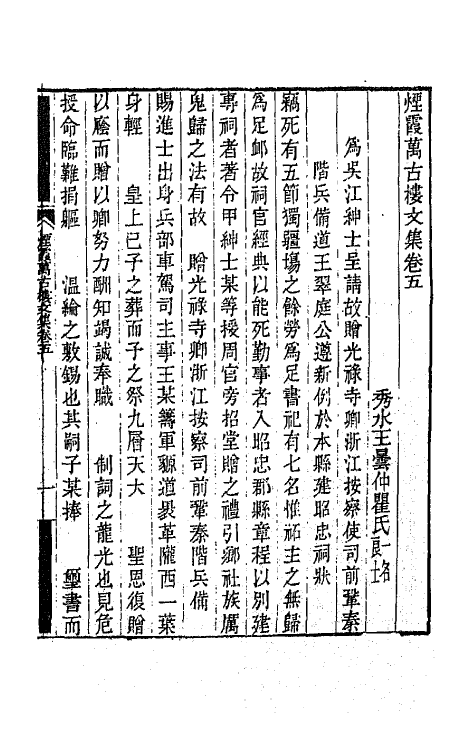 煙霞萬古樓文集卷五
秀水王曇仲瞿氏良士
爲吳江紳士呈請故贈光祿寺卿浙江按察使司前鞏秦
階兵備道王翠庭公遵新例於本縣建昭忠祠狀
竊死有五節獨疆場之餘勞爲足書祀有七名惟祐主之無歸
爲足卹故祠官經典以能死勤事者入昭忠郡縣章程以別建
專祠者著令甲紳士某等援周官旁招堂贈之禮引鄉社族厲
鬼歸之法有故 贈光祿寺卿浙江按察司前鞏秦階兵備
賜進士出身兵部車駕司主事王某籌軍貔道裹革隴西一葉
身輕 皇上已予之葬而予之祭九層天大 聖恩復贈
以廕而贈以卿努力酬知竭誠奉職 制詞之龍光也見危
授命臨難捐軀 溫綸之敷錫也其嗣子某捧 璽書而
煙霞萬古樓文集卷五
一